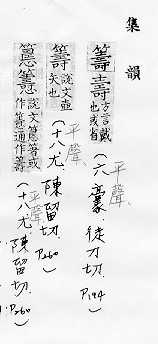 集韻
籌壽 方言戴也或省 平聲 (六豪.徒刀切.P.194)
籌 說文壺矢也 平聲 (十八尤.陳留切.P.260)
說文 或作 通作籌 平聲 (十八尤.陳留切.P.260)